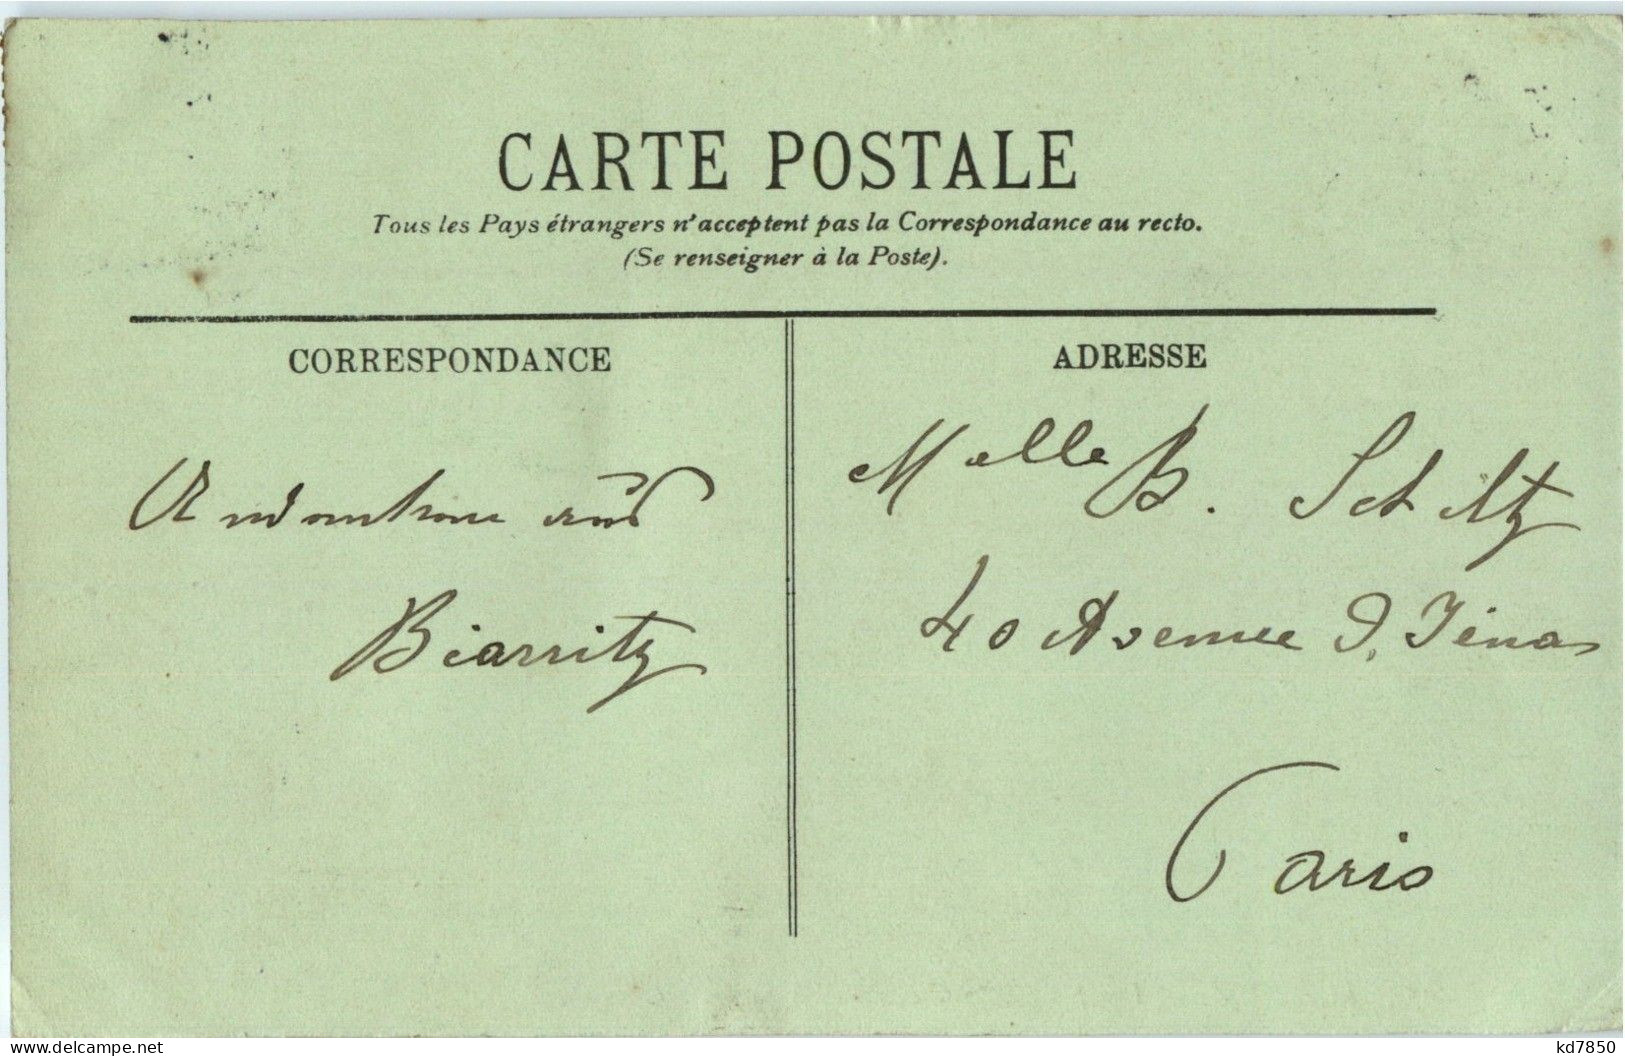 CARTE POSTALE
Tous les Pays étrangers n'acceptent pas la Correspondance au recto.
(Se renseigner à la Poste).
CORRESPONDANCE
Biarritz
ADRESSE
Melle B. Schiltz
40 Avenue d'Iéna
Paris
www.delcampe.net
kd7850